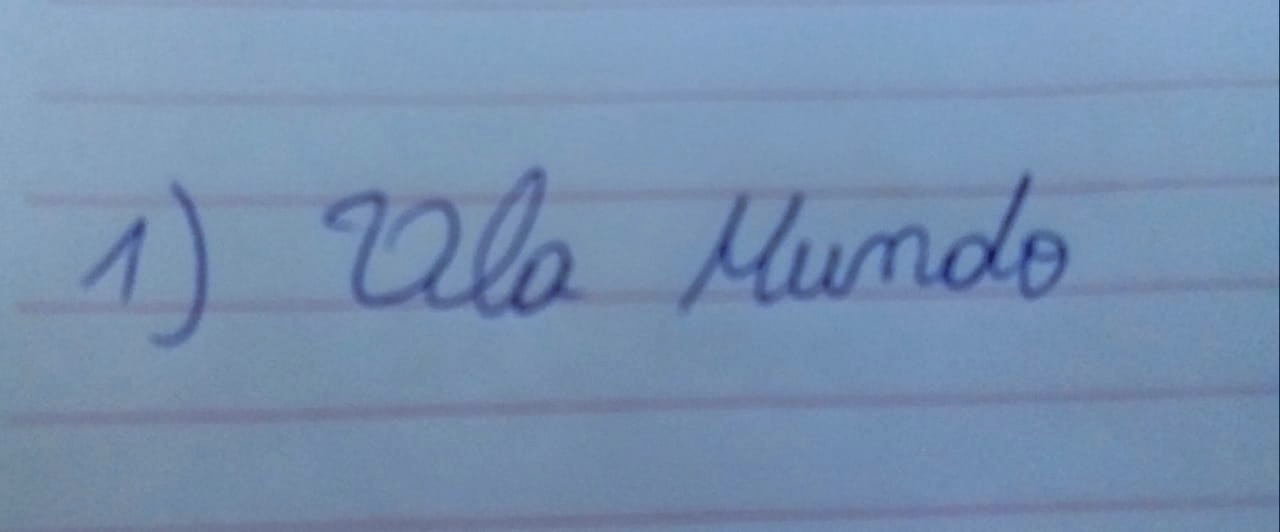 1) Ola Mundo